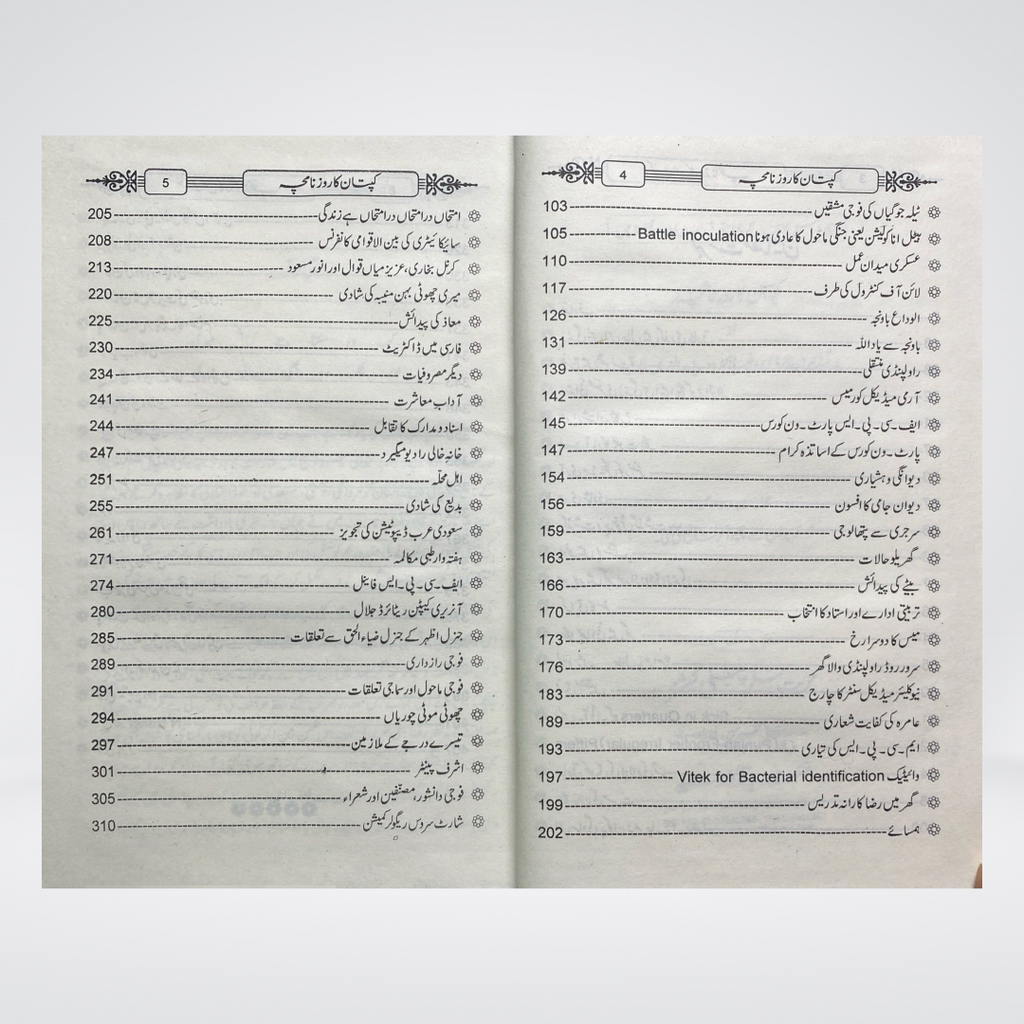 کپتان کا روزنامچہ
4
ٹیلہ جوگیاں کی فوجی مشقیں 103
بیٹل اناکولیشن یعنی جنگی ماحول کا عادی ہونا Battle inoculation 105
عسکری میدان عمل 110
لائن آف کنٹرول کی طرف 117
الوداع باونجہ 126
باونجہ سے یاد اللہ 131
راولپنڈی منتقلی 139
آرمی میڈیکل کور میس 142
ایف۔سی۔پی۔ایس پارٹ۔ون کورس 145
پارٹ۔ون کورس کے اساتذہ کرام 147
دیوانگی و ہشیاری 154
دیوان جامی کا افسون 156
سرجری سے پتھالوجی 159
گھریلو حالات 163
بیٹے کی پیدائش 166
تربیتی ادارے اور استاد کا انتخاب 170
میس کا دوسرا رخ 173
سرور روڈ راولپنڈی والا گھر 176
نیوکلیئر میڈیکل سنٹر کا چارج 183
عامرہ کی کفایت شعاری 189
ایم۔سی۔پی۔ایس کی تیاری 193
وائیٹیک Vitek for Bacterial identification 197
گھر میں رضاکارانہ تدریس 199
ہمسائے 202
کپتان کا روزنامچہ
5
امتحاں در امتحاں در امتحاں ہے زندگی 205
سائیکائیٹری کی بین الاقوامی کانفرنس 208
کرنل بخاری، عزیز میاں قوال اور انور مسعود 213
میری چھوٹی بہن منیبہ کی شادی 220
معاذ کی پیدائش 225
فارسی میں ڈاکٹریٹ 230
دیگر مصروفیات 234
آداب معاشرت 241
اسناد و مدارک کا تقابل 244
خانہ خالی را دیو میگیرد 247
اہل محلّہ 251
بدیع کی شادی 255
سعودی عرب ڈیپوٹیشن کی تجویز 261
ہفتہ وار طبی مکالمہ 271
ایف۔سی۔پی۔ایس فاینل 274
آنریری کیپٹن ریٹائرڈ جلال 280
جنرل اظہر کے جنرل ضیاء الحق سے تعلقات 285
فوجی رازداری 289
فوجی ماحول اور سماجی تعلقات 291
چھوٹی موٹی چوریاں 294
تیسرے درجے کے ملازمین 297
اشرف پینٹر 301
فوجی دانشور، مصنّفین اور شعراء 305
شارٹ سروس ریگولر کمیشن 310